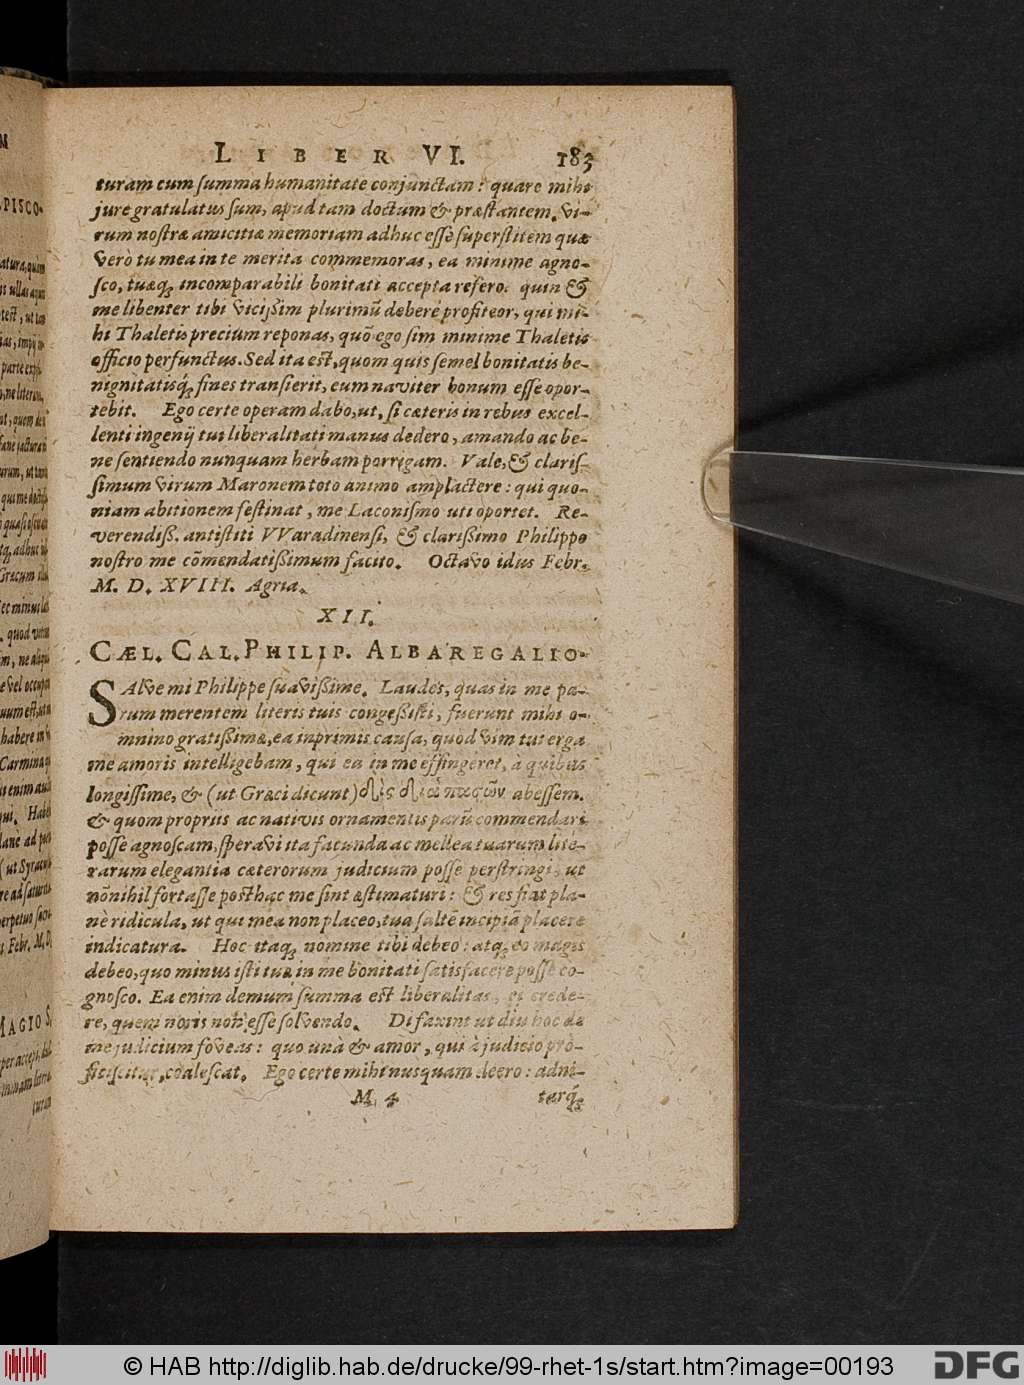 LIBER VI. 183
turam cum summa humanitate conjunctam: quare mihi
jure gratulatus sum, apud tam doctum & præstantem vi-
rum nostræ amicitiæ memoriam adhuc esse superstitem quæ
verò tu mea in te merita commemoras, ea minime agno-
sco, tuæq; incomparabili bonitati accepta refero. quin &
me libenter tibi vicißim plurimū debere profiteor, qui mi-
hi Thaletis precium reponas, quō ego sim minime Thaletis
officio perfunctus. Sed ita est, quom quis semel bonitatis be-
nignitatisq́; fines transierit, eum naviter bonum esse opor-
tebit. Ego certe operam dabo, ut, si cæteris in rebus excel-
lenti ingenij tui liberalitati manus dedero, amando ac be-
ne sentiendo nunquam herbam porrigam. Vale, & claris-
simum virum Maronem toto animo amplactere: qui quo-
niam abitionem festinat, me Laconismo uti oportet. Re-
verendiß. antistiti VVaradinensi, & clarißimo Philippo
nostro me cōmendatißimum facito. Octavo idus Febr.
M. D. XVIII. Agria.
XII.
CÆL. CAL. PHILIP. ALBAREGALIO.
SAlve mi Philippe suavißime. Laudes, quas in me pa-
rum merentem literis tuis congeßisti, fuerunt mihi o-
mnino gratißimæ, ea inprimis causa, quod vim tui erga
me amoris intelligebam, qui ea in me effingeret, à quibus
longissime, & (ut Græci dicunt) δὶς διὰ πασῶν abessem.
& quom propriis ac nativis ornamentis parū commendari
posse agnoscam, speravi ita facunda ac mellea tuarum lite-
rarum elegantia cæterorum judicium posse perstringi, ut
nōnihil fortasse posthac me sint æstimaturi: & res fiat pla-
nè ridicula, ut qui mea non placeo, tua saltē incipiā placere
indicatura. Hoc itaq; nomine tibi debeo: atq; eo magis
debeo, quo minus isti tuæ in me bonitati satisfacere posse co-
gnosco. Ea enim demum summa est liberalitas, ei crede-
re, quem noris non esse solvendo. Di faxint ut diu hoc de
me judicium foveas: quo unà & amor, qui à judicio pro-
ficiscitur, coalescat. Ego certe mihi nusquam deero: adni-
M 4 tarq́;
© HAB http://diglib.hab.de/drucke/99-rhet-1s/start.htm?image=00193
DFG